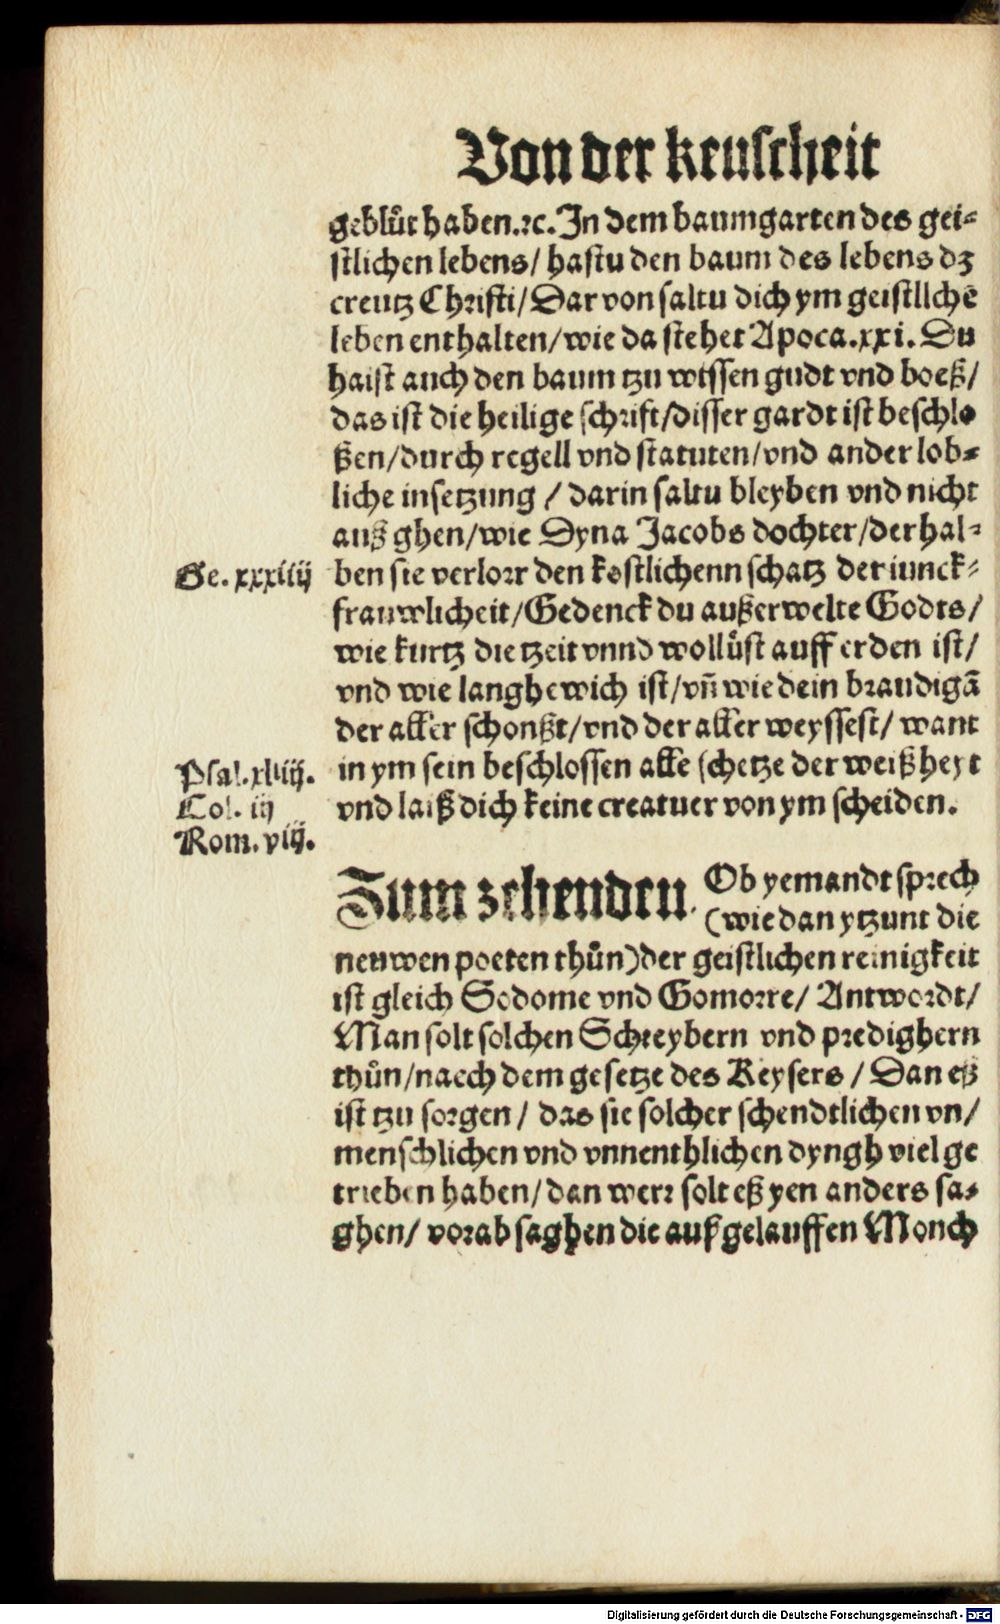 Von der keuscheit
geblůt haben.ꝛc. In dem baumgarten des gei⸗
stlichen lebens/ hastu den baum des lebens dz
creutz Christi/ Dar von saltu dich ym geistllchē
leben enthalten/ wie da stehet Apoca.xxi. Du
haist auch den baum tzu wissen gudt vnd boeß/
das ist die heilige schrift/ disser gardt ist beschlo
ßen/ durch regell vnd statuten/ vnd ander lob⸗
liche insetzung / darin saltu bleyben vnd nicht
auß ghen/ wie Dyna Jacobs dochter/ der hal⸗
Ge. xxxiiij
ben sie verlorr den kostlichenn schatz der iunck⸗
frauwlicheit/ Gedenck du außerwelte Godts/
wie kurtz die tzeit vnnd wollůst auff erden ist/
vnd wie langh ewich ist/ vñ wie dein braudigā
der aller schonßt/ vnd der aller weyssest/ want
Psal. xliiij.
in ym sein beschlossen alle schetze der weißheyt
Col. ij
vnd laiß dich keine creatuer von ym scheiden.
Rom. viij.
Zum zehenden. Ob yemandt sprech
(wie dan ytzunt die
neuwen poeten thůn) der geistlichen reinigkeit
ist gleich Sodome vnd Gomorre/ Antwordt/
Man solt solchen Schreybern vnd predighern
thůn/ naech dem gesetze des Keysers / Dan eß
ist tzu sorgen / das sie solcher schendtlichen vn/
menschlichen vnd vnnenthlichen dyngh viel ge
trieben haben/ dan werr solt eß yen anders sa⸗
ghen/ vorab saghen die außgelauffen Monch
Digitalisierung gefördert durch die Deutsche Forschungsgemeinschaft - DFG